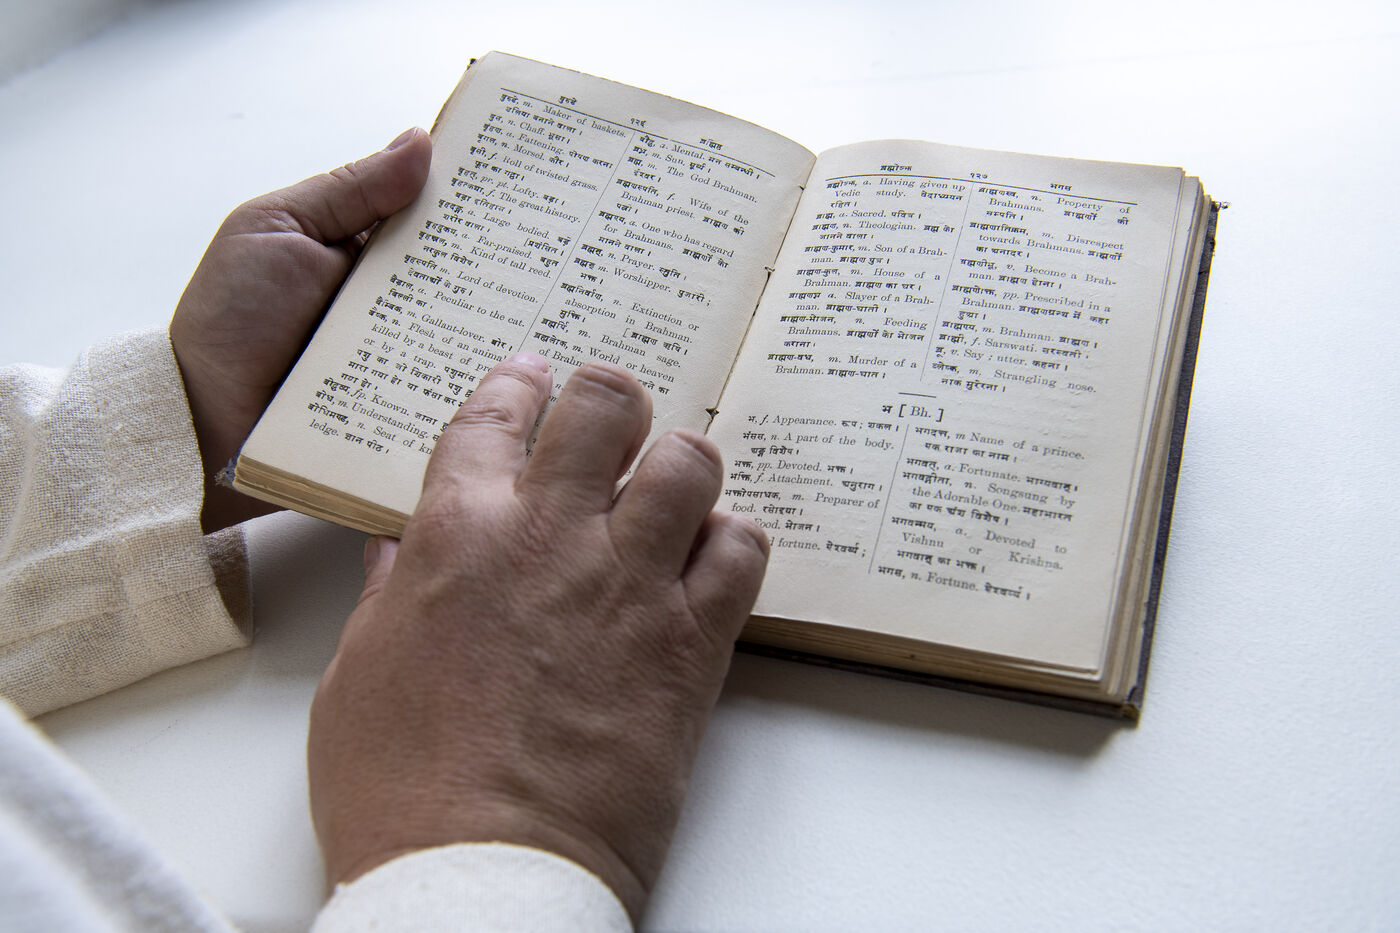 बुरुडे
१२६
ब्राह्मिष्ठ
बुरुडे, m. Maker of baskets.
डलिया बनाने वाला।
बुस, n. Chaff. भूसा।
बृंहण, a. Fattening. पोषण करना
बृगल, n. Morsel. कौर।
बृसी, f. Roll of twisted grass.
फूस का गट्ठा।
बृहत्, pr. pt. Lofty. बड़ा।
बृहत्कथा, f. The great history.
बड़ा इतिहास।
बृहदङ्ग, a. Large bodied. बड़े
शरीर वाला। [प्रशंसित
a. Far-praised. बहुत
m. Kind of tall reed.
नरकुल विशेष।
बृहस्पति m. Lord of devotion.
देवताओं के गुरु।
बैडाल, a. Peculiar to the cat.
बिल्ली का।
बैम्बिक, m. Gallant-lover. बीर।
बैष्क, n. Flesh of an animal
killed by a beast of
or by a trap. पशुमांस
पशु का जो शिकारी पशु
मारा गया हो या फंसा कर
गठा हो।
बोद्धव्य, fp. Known. जाना
बोध, m. Understanding.
बोधिमण्ड, n. Seat of
ledge. ज्ञान पीठ।
बौद्ध, a. Mental. मन सम्बन्धी।
ब्रध्न, m. Sun. सूर्य्य।
ब्रह्म, m. The God Brahman.
ईश्वर।
ब्रह्मणस्पत्नि, f. Wife of the
Brahman priest. ब्राह्मण की
पत्नी।
ब्रह्मण्य, a. One who has regard
for Brahmans. ब्राह्मणों का
मानने वाला।
ब्रह्मन्, n. Prayer. स्तुति।
ब्रह्मन् m. Worshipper. पुजारी;
भक्त।
ब्रह्मनिर्वाण, n. Extinction or
absorption in Brahman.
मुक्ति। [ब्राह्मण ऋषि।
ब्रह्मर्षि, m. Brahman sage.
ब्रह्मलोक, m. World or heaven
of
का
ब्रह्मोज्झ
१२७
भगस
ब्रह्मोज्झ, a. Having given up
Vedic study. वेदाध्ययन
रहित।
ब्राह्म, a. Sacred. पवित्र।
ब्राह्मण, n. Theologian. ब्रह्म का
जानने वाला।
ब्राह्मण-कुमार, m. Son of a Brah-
man. ब्राह्मण पुत्र।
ब्राह्मण-कुल, m. House of a
Brahman. ब्राह्मण का घर।
ब्राह्मणघ्न a. Slayer of a Brah-
man. ब्राह्मण-घाती।
ब्राह्मण-भोजन, n. Feeding
Brahmans. ब्राह्मणों का भोजन
कराना।
ब्राह्मण-वध, m. Murder of a
Brahman. ब्राह्मण-घात।
ब्राह्मणस्व, n. Property of
Brahmans. ब्राह्मणों की
सम्पत्ति।
ब्राह्मणातिक्रम, m. Disrespect
towards Brahmans. ब्राह्मणों
का अनादर।
ब्राह्मणीभू, v. Become a Brah-
man. ब्राह्मण होना।
ब्राह्मणोक्त, pp. Prescribed in a
Brahman. ब्राह्मणग्रन्थ में कहा
हुआ।
ब्राह्मण्य, m. Brahman. ब्राह्मण।
ब्राह्मी, f. Sarswati. सरस्वती।
ब्रू, v. Say; utter. कहना।
ब्लेष्क, m. Strangling nose.
नाक मुरेरना।
भ [Bh.]
भ, f. Appearance. रूप; शकल।
भंसस, n. A part of the body.
अङ्ग विशेष।
भक्त, pp. Devoted. भक्त।
भक्ति, f. Attachment. अनुराग।
भक्तोपसाधक, m. Preparer of
food. रसोइया।
Food. भोजन।
fortune. ऐश्वर्य्य;
भगदत्त, m Name of a prince.
एक राजा का नाम।
भगवत्, a. Fortunate. भाग्यवान्।
भगवद्गीता, n. Songsung by
the Adorable One. महाभारत
का एक अंश विशेष।
भगवन्मय, a. Devoted to
Vishnu or Krishna.
भगवान् का भक्त।
भगस, n. Fortune. ऐश्वर्य्य।